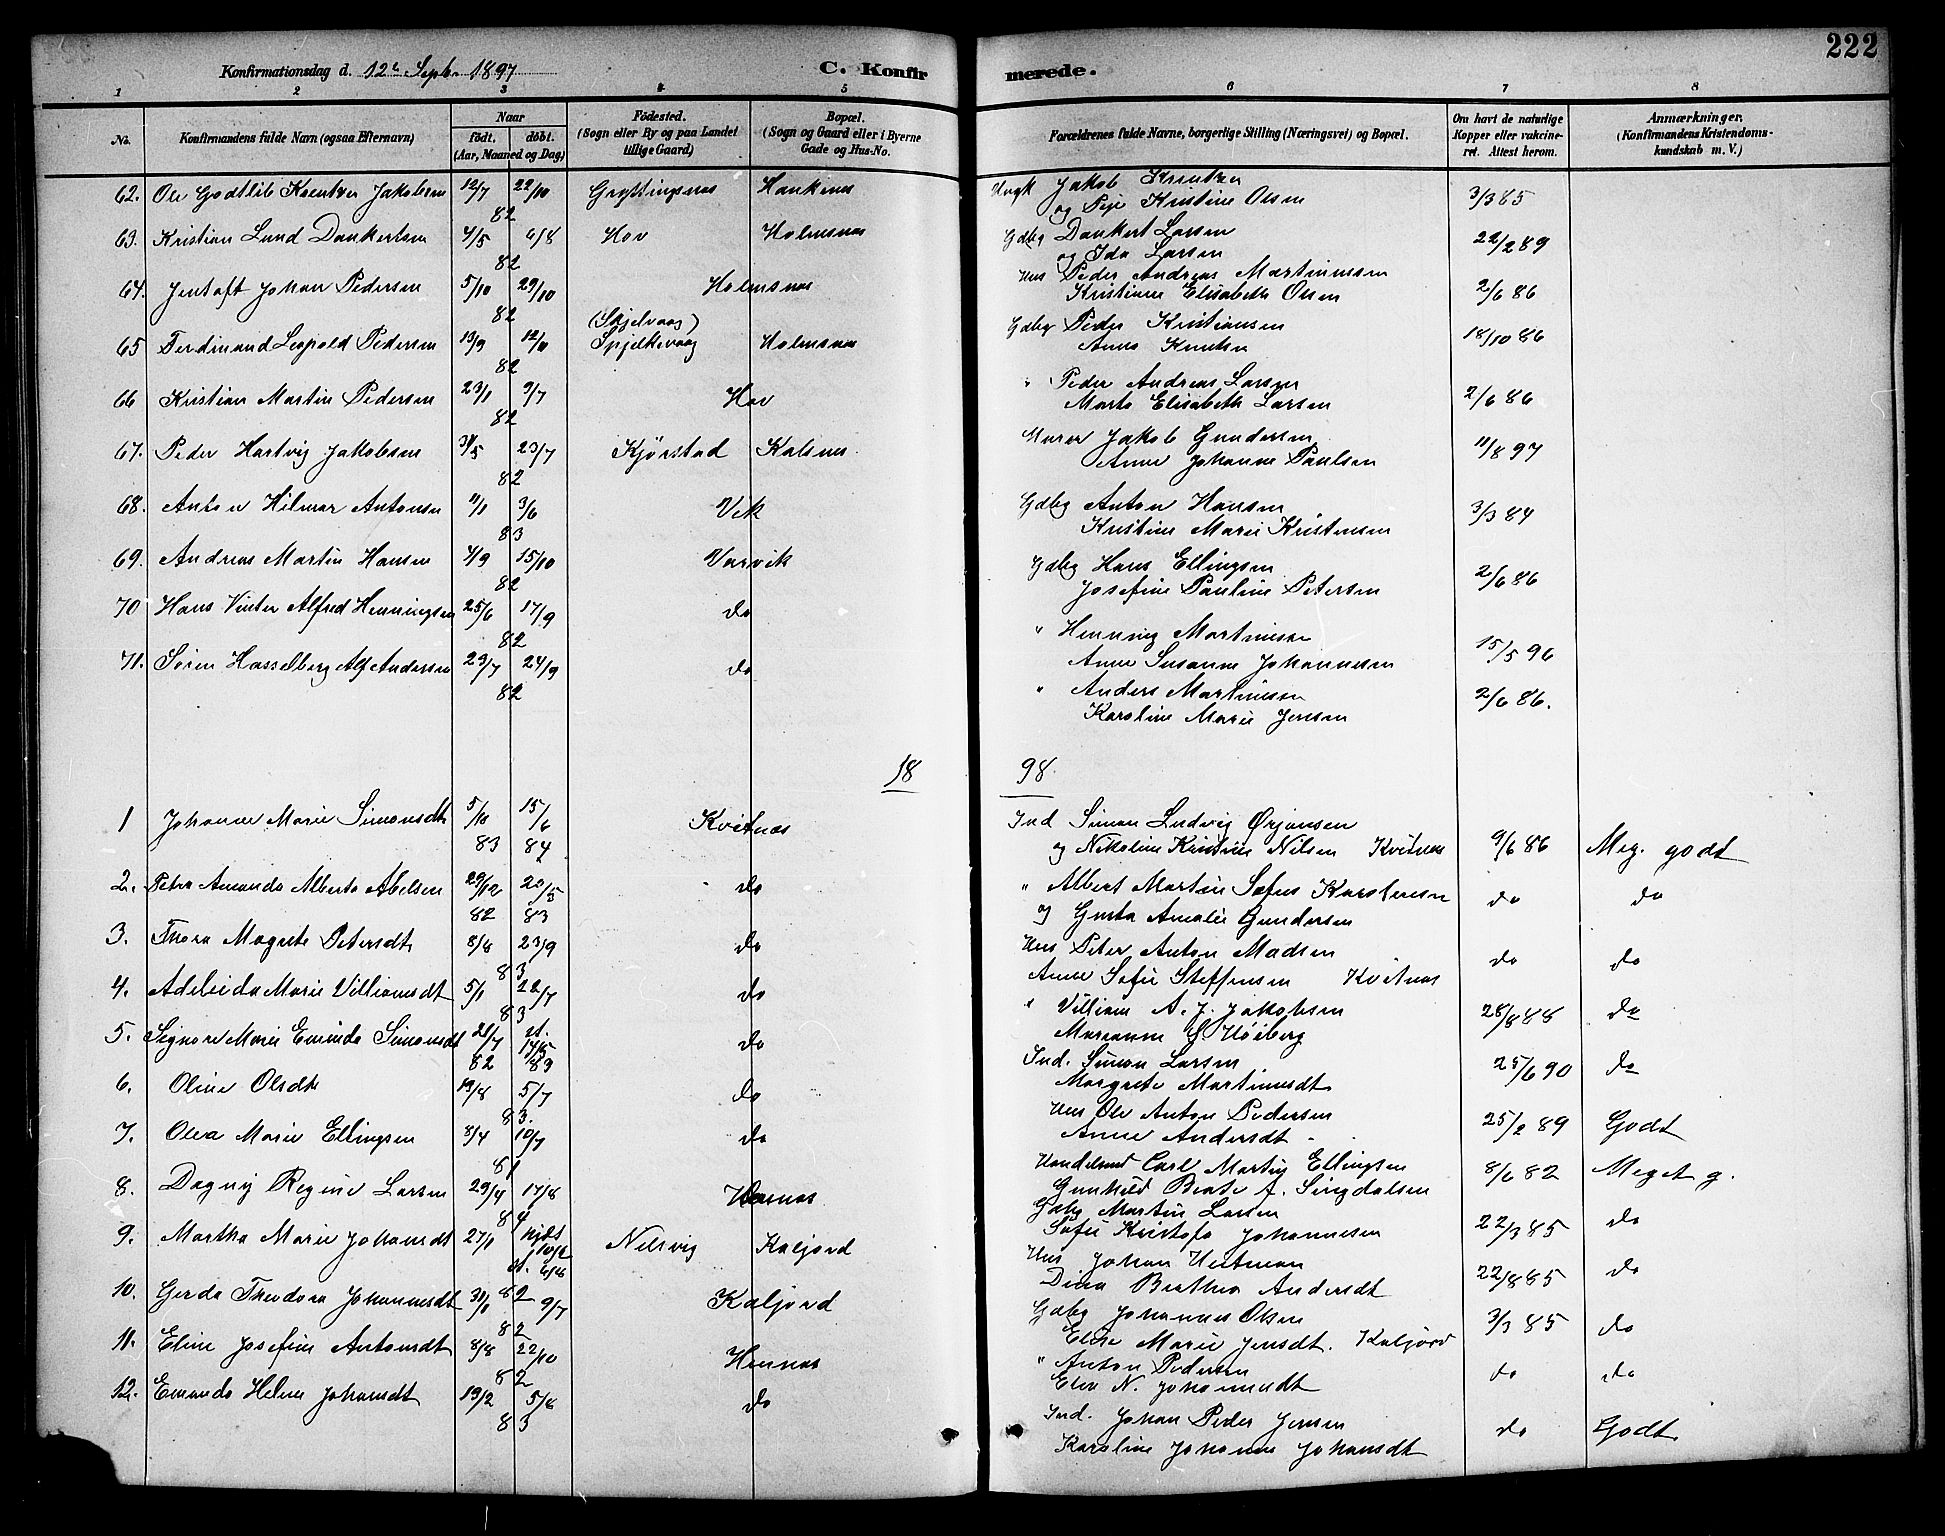 222
Konfirmationsdag d. 12te Septb. 1897
C. Konfirmerede.
1 2 3 4 5 6 7 8
No.
Konfirmandens fulde Navn (ogsaa Efternavn)
Naar
født. døbt.
(Aar, Maaned og Dag)
Fødested.
(Sogn eller By og paa Landet
tillige Gaard.)
Bopæl.
(Sogn og Gaard eller i Byerne
Gade og Hus-No.
Forældrenes fulde Navne, borgerlige Stilling (Næringsvei) og Bopæl.
Om havt de naturlige
Kopper eller vakcine-
ret. Attest herom.
Anmærkninger.
(Konfirmandens Kristendoms-
kundskab m. V.)
62. Ole Godtlib Kentzen Jakobsen 12/7 22/10 Gryttingsnes Haukenes Jakob Kentzen 3/3 85
82 og Kristine Olsen
63. Kristian Lund Dankertsen 4/5 6/8 Hov Holmsnes Gdbg Dankert Larsen 22/2 89
82 og Ida Larsen
64. Jentoft Johan Pedersen 5/10 29/10 Holmsnes Hus Peder Andreas Martinussen 2/6 86
82 Kristiane Elisabeth Olsen
65 Ferdinand Leopold Pedersen 13/9 12/11 (Skjelvaag) Spjelkevaag Holmsnes Gdbg Peder Kristiansen 18/10 86
82 Anna Knutsen
66 Kristian Martin Pedersen 23/1 9/7 Hov " Peder Andreas Larsen 2/6 86
82 Marta Elisabeth Larsen
67. Peder Hartvig Jakobsen 31/5 23/7 Kjørstad Kalsnes Murer Jakob Gundersen 11/8 97
82 Anne Johanne Paulsen
68. Anton Hilmar Antonsen 11/1 3/6 Vik Gdbg Anton Hansen 3/3 84
83 Kristine Marie Kristensen
69. Andreas Martin Hansen 4/9 15/10 Varvik Gdbg Hans Ellingsen 2/6 86
82 Josefine Pauline Petersen
70 Hans Vinter Alfred Henningsen 25/6 17/9 do " Henning Martinussen 15/5 96
82 Anne Susanne Johannesen
71. Søren Hasselberg Alf Andersen 23/7 24/9 do " Anders Martinussen 2/6 86.
82 Karoline Marie Jensen
18 98.
1 Johanne Marie Simonsdt 5/10 15/6 Kvitnes Ind Simon Ludvig Ørjansen 9/6 86 Meg. godt
83 84 og Nikoline Kristine Nilsen Kvitnes
2. Petra Amanda Alberta Abelsen 29/12 20/5 do " Albert Martin Sofus Karstensen do do
82 83 og Gusta Amalie Gundersen
3. Thora Magrete Petersdt 8/8 23/9 do Hus Peter Anton Madsen do do
83 Anne Sofie Steffensen Kvitnes
4. Adeleida Marie Villiamsdt 5/1 22/7 do " Villiam A. J. Jakobsen 28/8 88 do
83 Marianne S. Høiberg
5. Signora Marie Eminda Simonsdt 21/7 do Ind. Simon Larsen 25/6 90 do
82 83 Margrete Martinusdt
6. Oline Olsdt 19/8 5/7 do Hus Ole Anton Pedersen 25/2 89 Godt
83. Anne Andersdt
7. Olea Marie Ellingsen 8/4 10/7 do Handelsmd Carl Martin Ellingsen 8/6 82 Meget g.
81 Gunhild Beate A. Singdalsen
8. Dagny Regine Larsen 29/4 17/8 Hennes Gdbg Martin Larsen 22/3 85 do
84 Sofie Kristofa Johannesen
9. Martha Marie Johansdt 27/1 hjdt 10/2 Nilsvig Kaljord Hus Johan Hertman 22/8 85 do
st. 6/8 82 Dina Berthea Andersdt
10. Gerda Theodora Johannesdt 31/1 9/7 Kaljord Gdbg Johannes Olsen 3/3 85 do
82 Elise Marie Jensdt. Kaljord
11. Eline Josefine Antonsdt 8/8 22/10 Hennes " Anton Pedersen do do
82 Elen N. Johannesdt
12. Emanda Helene Johansdt 19/2 5/8 do Ind. Johan Peder Jensen do Godt
83 Karoline Johanne Johansdt